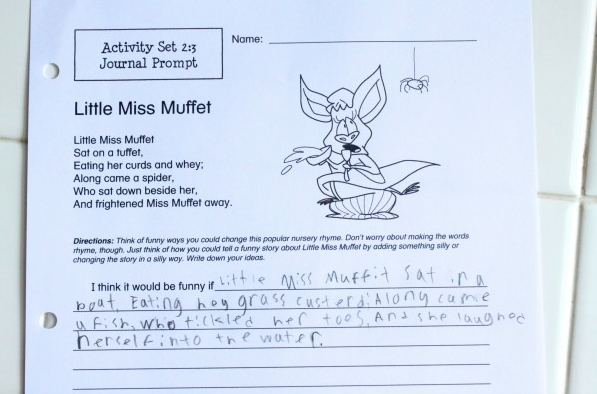 Activity Set 2:3
Journal Prompt
Name:
Little Miss Muffet
Little Miss Muffet
Sat on a tuffet,
Eating her curds and whey;
Along came a spider,
Who sat down beside her,
And frightened Miss Muffet away.
Directions: Think of funny ways you could change this popular nursery rhyme. Don't worry about making the words
rhyme, though. Just think of how you could tell a funny story about Little Miss Muffet by adding something silly or
changing the story in a silly way. Write down your ideas.
I think it would be funny if Little Miss Muffit Sat in a
boat, Eating hey grass custerd; Along came
a fish, Who tickled her toes, And she laughed
herself into the water.